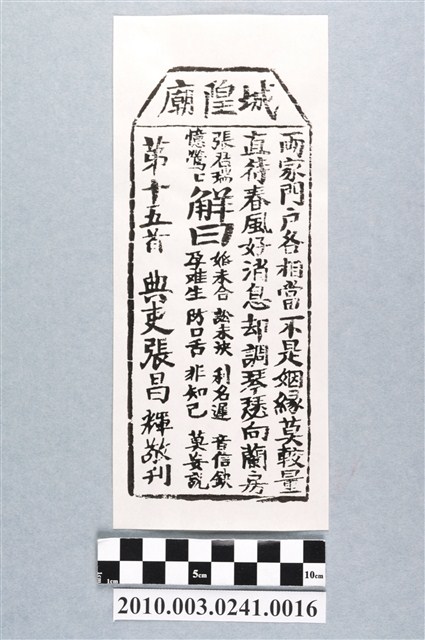 城隍廟
両家門戶各相當不是姻緣莫較量
直待春風好消息却調琴瑟向蘭房
張君瑞
憶鶯〻
解曰
婚未合 訟未決 利名遲 音信缺
孕难生 防口舌 非知己 莫妄說
第十五首 典吏張昌輝敬刊
1cm 1cm 5cm 10cm
2010.003.0241.0016